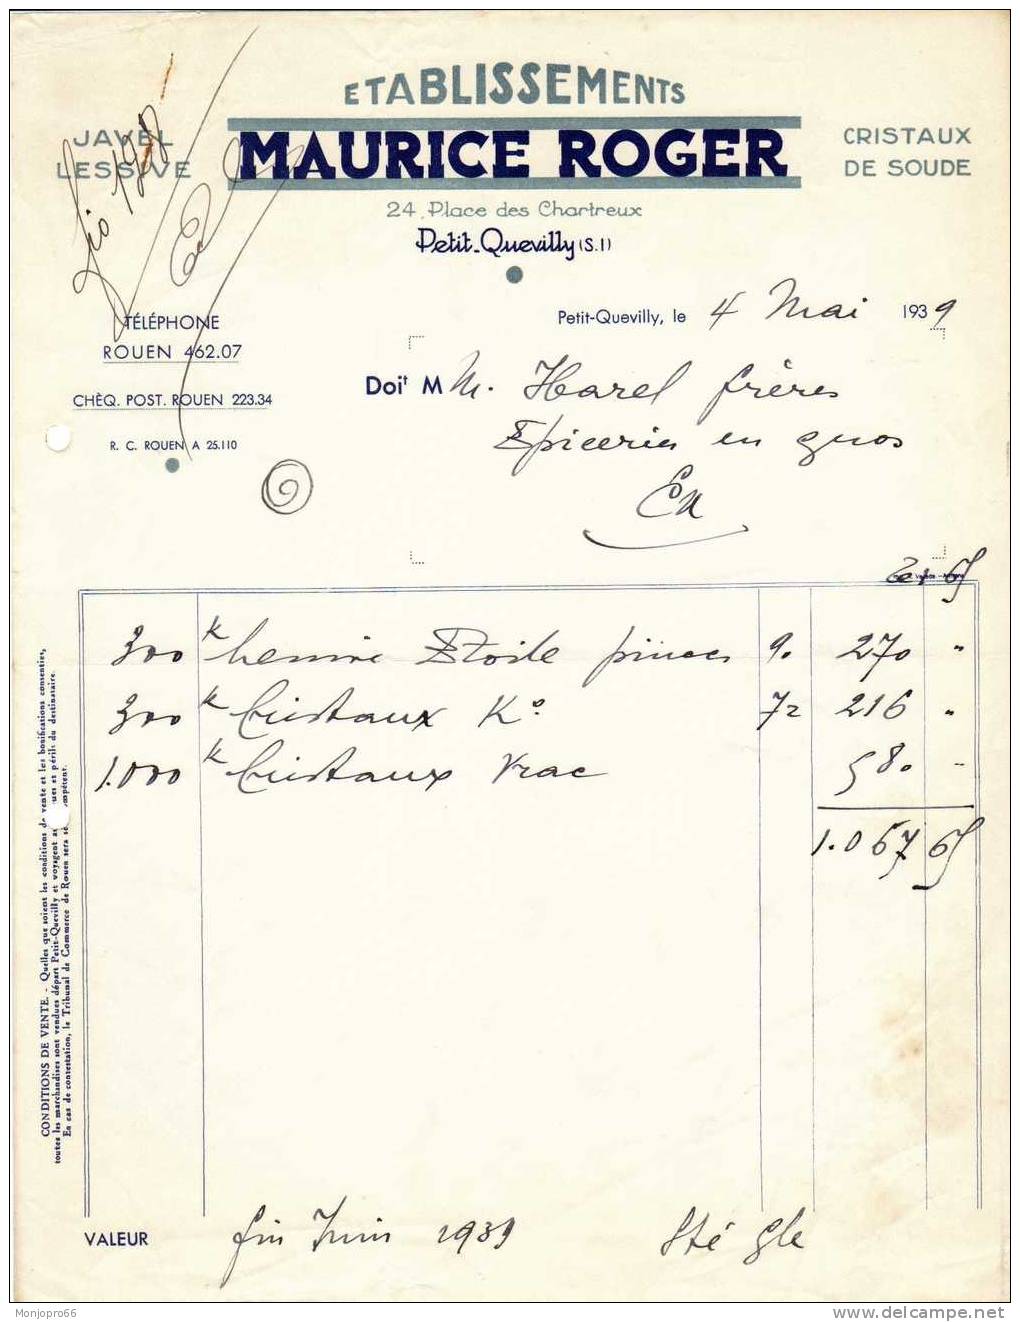 ETABLISSEMENTS
MAURICE ROGER
JAVEL
LESSIVE
CRISTAUX
DE SOUDE
24, Place des Chartreux
Petit-Quevilly (S.I)
TÉLÉPHONE
ROUEN 462.07
CHÈQ. POST. ROUEN 223.34
R. C. ROUEN A 25.110
Petit-Quevilly, le 4 Mai 1939
Doit M M. Harel frères
Epiceries en gros
65
300 k Etoile 9. 270 "
300 k Cristaux K° 72 216 "
1.000 k Cristaux Vrac 580 -
1.067 65
CONDITIONS DE VENTE. - Quelles que soient les conditions de vente et les bonifications consenties,
toutes les marchandises sont vendues départ Petit-Quevilly et voyagent aux et périls du destinataire.
En cas de contestation, le Tribunal de Commerce de Rouen sera compétent.
VALEUR fin Juin 1939 Sté Gle
Monjopro66
www.delcampe.net